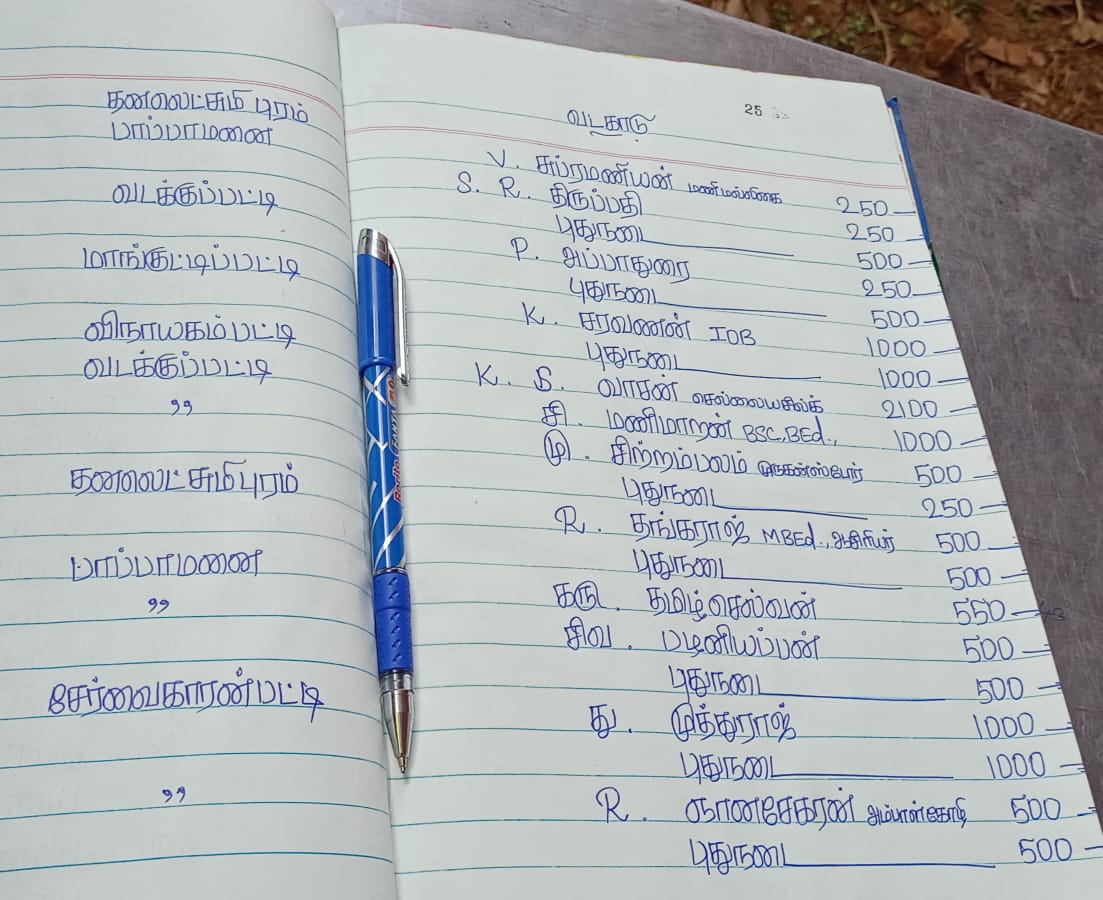 தனலெட்சுமிபுரம்
பாப்பாமனை
வடக்குப்பட்டி
மாங்குட்டிப்பட்டி
விநாயகம்பட்டி
வடக்குப்பட்டி
"
தனலெட்சுமிபுரம்
பாப்பாமனை
"
சேர்வைகாரன்பட்டி
"
25
வடகாடு
V. சுப்ரமணியன் 250
S. R. திருப்பதி 250
புதுநடை 500
P. அப்பாதுரை 250
புதுநடை 500
K. சரவணன் IOB 1000
புதுநடை 1000
K. S. வாசன் 2100
சி. மணிமாறன் BSC.BEd., 1000
மு. சிற்றம்பலம் 500
புதுநடை 250
R. தங்கராஜ் MBEd., ஆசிரியர் 500
புதுநடை 500
கரு. தமிழ்செல்வன் 550
சிவ. பழனியப்பன் 500
புதுநடை 500
து. முத்துராஜ் 1000
புதுநடை 1000
R. ஞானசேகரன் 500
புதுநடை 500